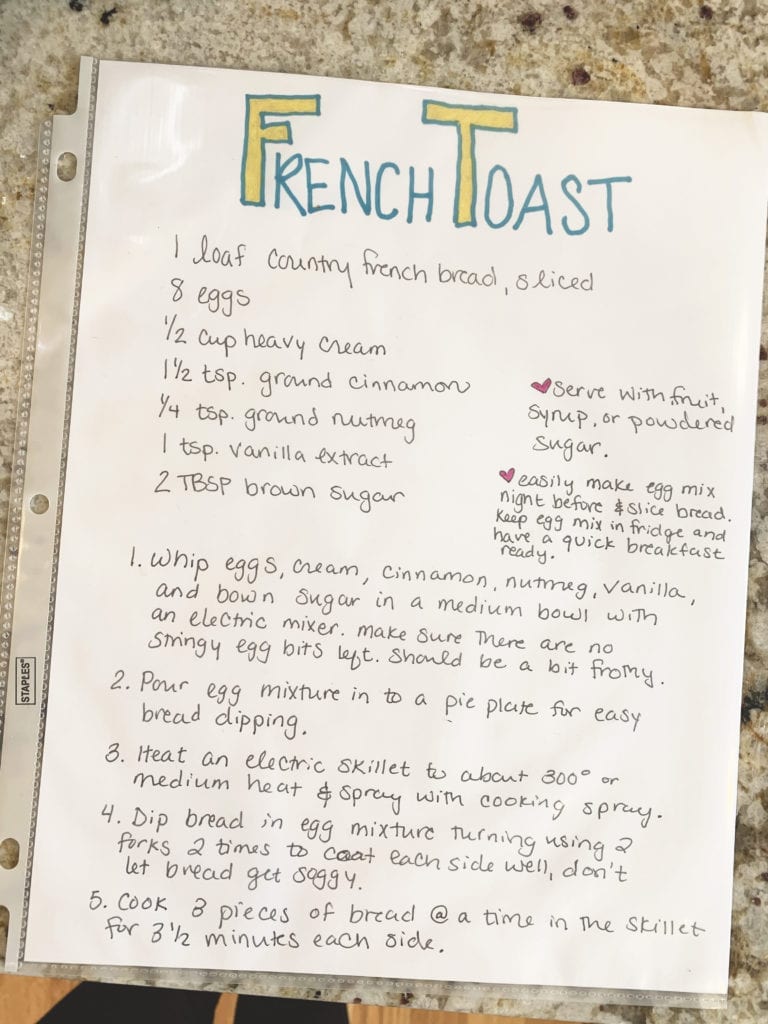 FRENCH TOAST
1 loaf country french bread, sliced
8 eggs
1/2 cup heavy cream
1 1/2 tsp. ground cinnamon
1/4 tsp. ground nutmeg
1 tsp. vanilla extract
2 TBSP brown sugar
♥ serve with fruit,
syrup, or powdered
sugar.
♥ easily make egg mix
night before & slice bread.
Keep egg mix in fridge and
have a quick breakfast
ready.
1. Whip eggs, cream, cinnamon, nutmeg, vanilla,
and bown sugar in a medium bowl with
an electric mixer. make sure there are no
stringy egg bits left. Should be a bit frothy.
2. Pour egg mixture in to a pie plate for easy
bread dipping.
3. Heat an electric skillet to about 300° or
medium heat & spray with cooking spray.
4. Dip bread in egg mixture turning using 2
forks 2 times to coat each side well, don't
let bread get soggy.
5. Cook 3 pieces of bread @ a time in the skillet
for 3 1/2 minutes each side.
STAPLES